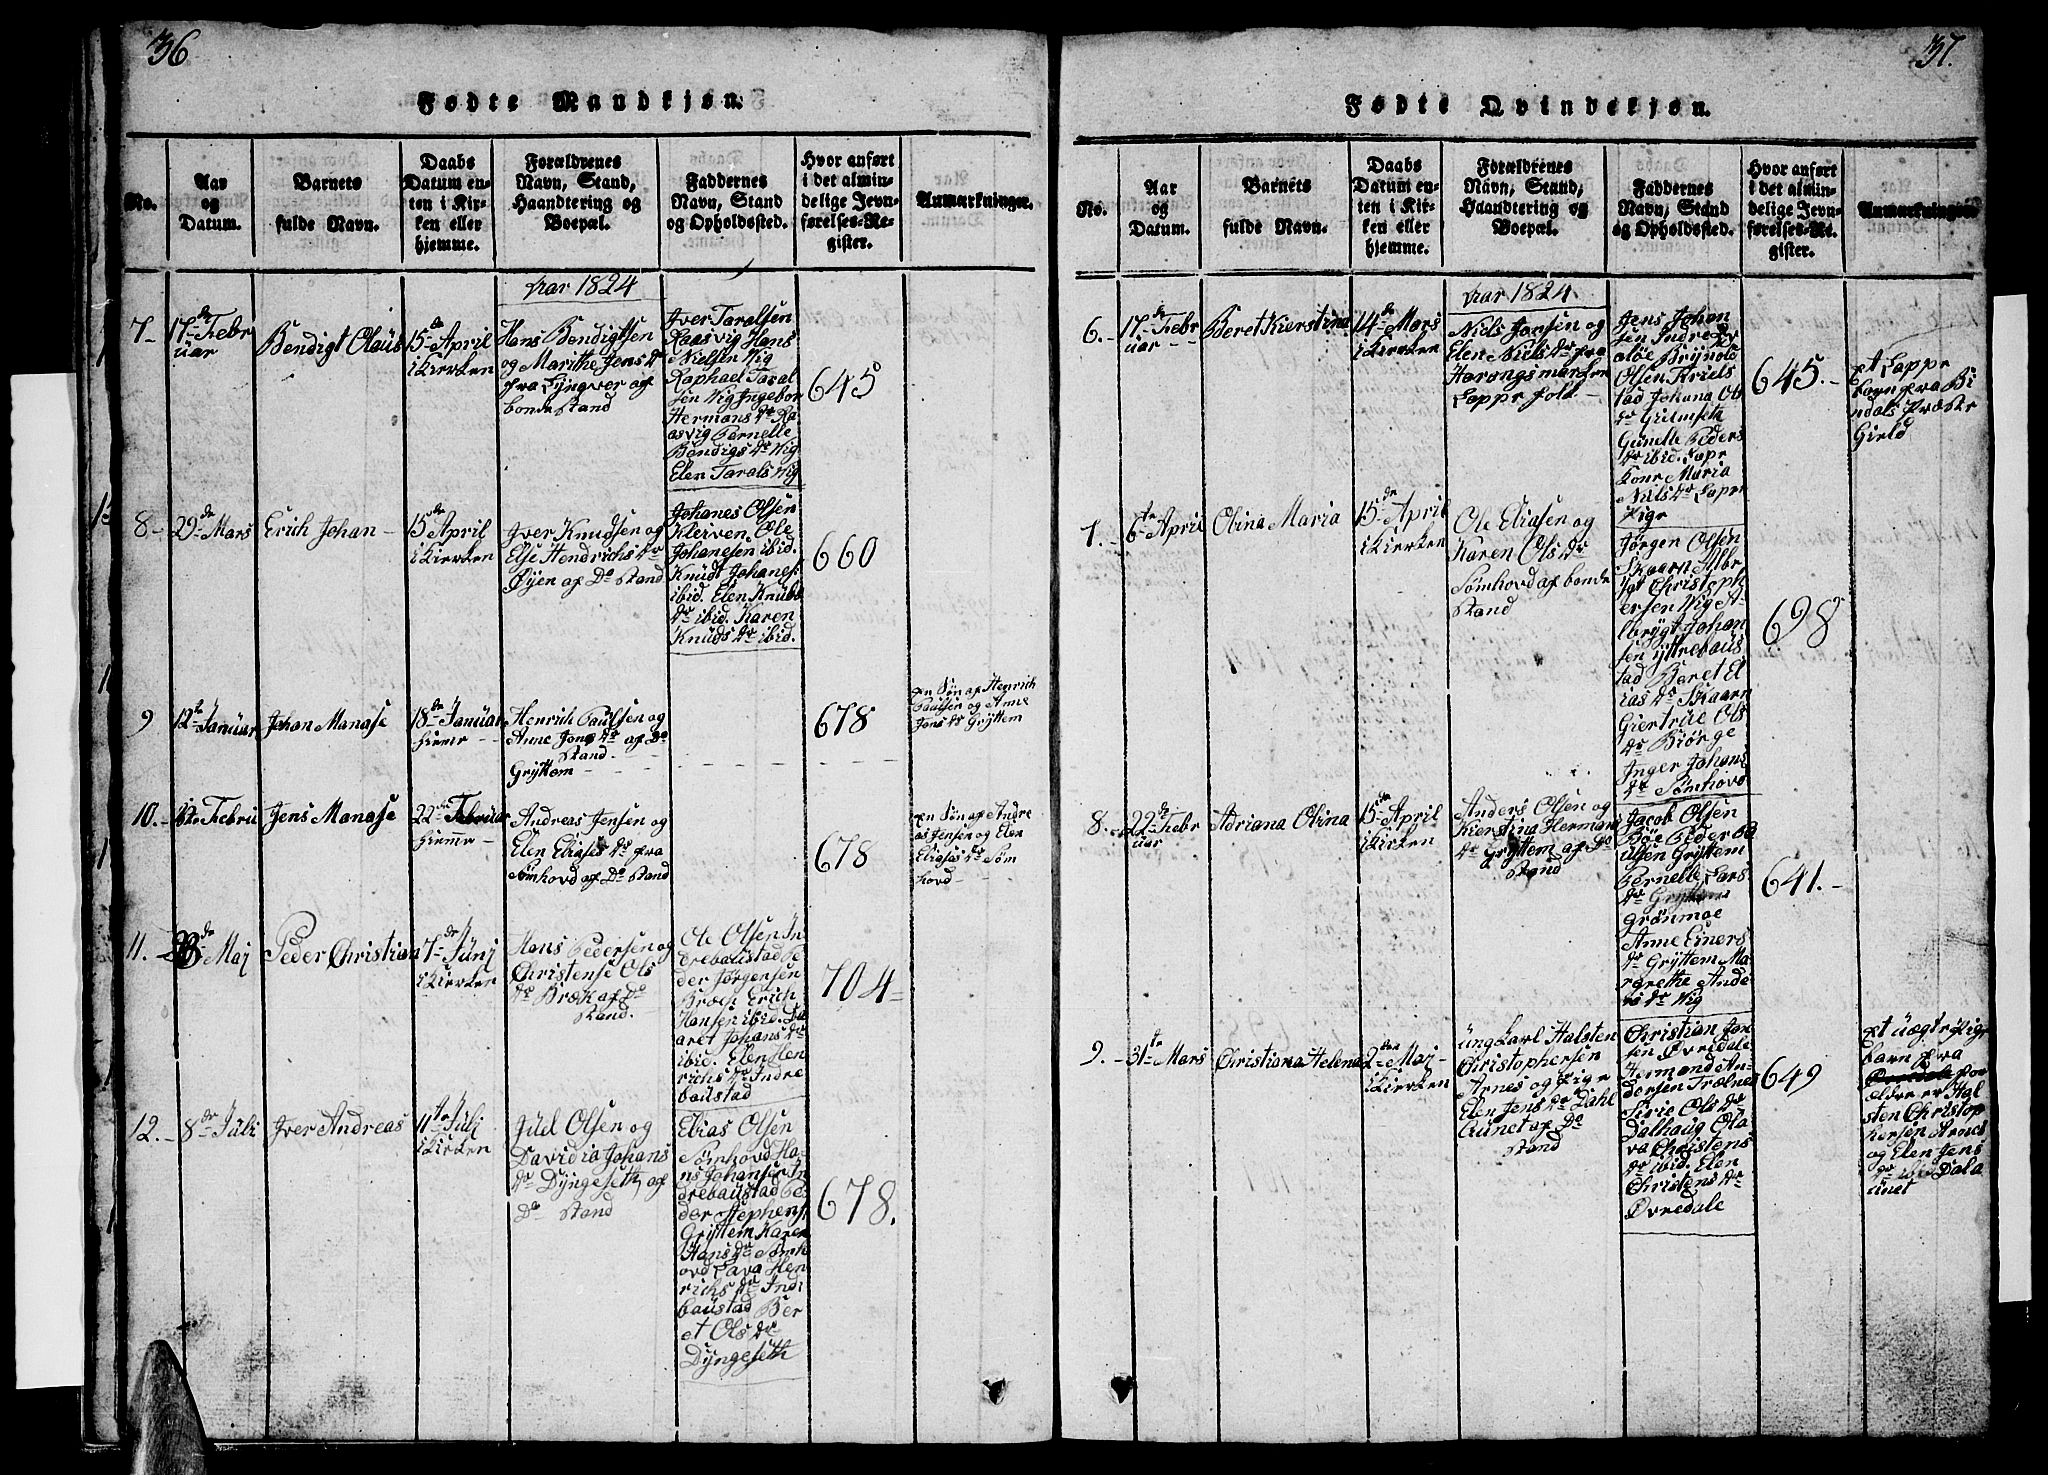 36
Fødte Mandkjøn.
No.
Aar
og
Datum.
Barnets
fulde Navn.
Daabs
Datum en-
ten i Kir-
ken eller
hjemme.
Forældrenes
Navn, Stand,
Haandtering og
Boepæl.
Faddernes
Navn, Stand
og Opholdssted.
Hvor anført
i det almin-
delige Jevn-
førelses-Re-
gister.
Anmærkninger.
Aar 1824
7-
17de Febr
üar
Bendigt Olaüs
15de April
i Kierken
Hans Bendigtsen
og Marithe Jens dr
fra Lÿngvær af
bonde Stand
Iver Taralsen
Raasvig Hans
Nielsen Vig
Raphael Taral
sen Vig Ingebor
Hermans dr Ra
asvig Pernelle
Bendigs dr Vig
Elen Tarals Vig
645
8-
29de Mars
Erich Johan -
15de April
i Kierken
Iver Knudsen og
Else Hendrichs dr
Øÿen af Do Stand
Johanes Olsen
Kleiven. Ole
Johanesen ibid.
Knüdt Johanes.
ibid. Elen Knüds
dr ibid. Karen
Knüds dr ibid.
660
9
12te Janüar
Johan Manase
18de Janüar
hieme -
Henrich Paülsen og
Anne Jons dr af Do
Stand. -
Grÿttem - -
678
en Søn af Henrich
Paulsen og Anne
Jons dr Grÿttem
10.-
Febru
Jens Manase
22de Febrüar
hieme -
Andreas Jensen og
Elen Eliases dr fra
Sømhovd af Do Stand
678
en Søn af Andre
as Jensen og Elen
Eliases dr Søm
hovd -
11.-
Maj
Peder Christian
7de Jünj
i Kierken
Hans Pedersen og
Christense Ols
dr Bræk af Do
Stand.
Ole Olsen In
drebaustad Pe
der Jørgensen
Bræch Erich
Hansen ibid. Da
aret Johans dr
ibid. Elen Hen
richs dr Indre
baüstad
704-
12.-
8de Jüli
Iver Andreas
11te Jülj
i Kierken
Jüel Olsen og
Davidia Johans
dr Dÿngeseth, af
Do Stand
Elias Olsen
Sømhovd Ha-
ns Johansen In
drebaustad Pe
der Stephens.
Grÿttem Karen
Hans dr Sømh
ovd Lava Hen
richs dr Indr
baüstad Ber
et Ols dr
Dÿngeseth
678.
37.
Fødte Qvindekjøn.
No.
Aar
og
Datum.
Barnets
fulde Navn.
Daabs
Datum en-
ten i Kir-
ken eller
hjemme.
Forældrenes
Navn, Stand,
Haandtering og
Boepæl.
Faddernes
Navn, Stand
og Opholdssted.
Hvor anført
i det almin-
delige Jevn-
førelses-Re-
gister.
Anmærkninger
Aar 1824.
6.-
17de Febr
üar -
Beret Kierstina
14de Mars
i Kierken
Niels Jonsen og
Elen Niels dr fra
Harangsmarken
Lappe folk -
Jens Johan
sen Indre
aløe Brÿnolt
Olsen
stad Johana Ols
dr Grimseth
Gunelle Peders
dr ibid. Lape
kone Maria
Niels dr Lape
pige
645.-
et Lappe
barn fra Bi
ndals Præste
Gield
7.-
6te April
Olina Maria
15de April
i Kierken
Ole Eliasen og
Karen Ols dr
Sømhovd af bonde
Stand
Jørgen Olsen
Skaarn Albr
ÿgt Christoph
ersen Vig A-
lbrÿgt Johan
sen ÿttrebaüs
tad Beret El
ias dr Skaarn
Giertrüe Ols
dr Biørge
Inger Johans
dr Sømhovd
698
8.-
22de Febr
üar
Adriana Olina
15de April
i Kierken
Anders Olsen og
Kierstina Herman
dr Grÿttem af Do
Stand
Jacob Olsen
Bøe Peder Pa
ülsen Grÿttem
Pernelle Lars
dr
Grønmoe
Anne Einers
dr Grÿttem Ma
rgrethe Ande
rs dr Vig
641.-
9.-
31te Mars
Christiana Helena
2den Maj-
i Kierken
üng Karl Halsten
Christophersen
Arnes og Pige
Elen Jens dr Dahl
aünet af Do
Stand
Christian Jon
sen Øvredale
Hermand An-
dersen Trælnes
Sirie Ols dr
Dalhaug Ola
va Christens
dr ibid. Elen
Christens dr
Øvredale
649
et üægte Pige
barn fra
for
ældre er Hal
sten Christop
hersen Arnes
og Elen Jens
dr ibid Dala
ünet